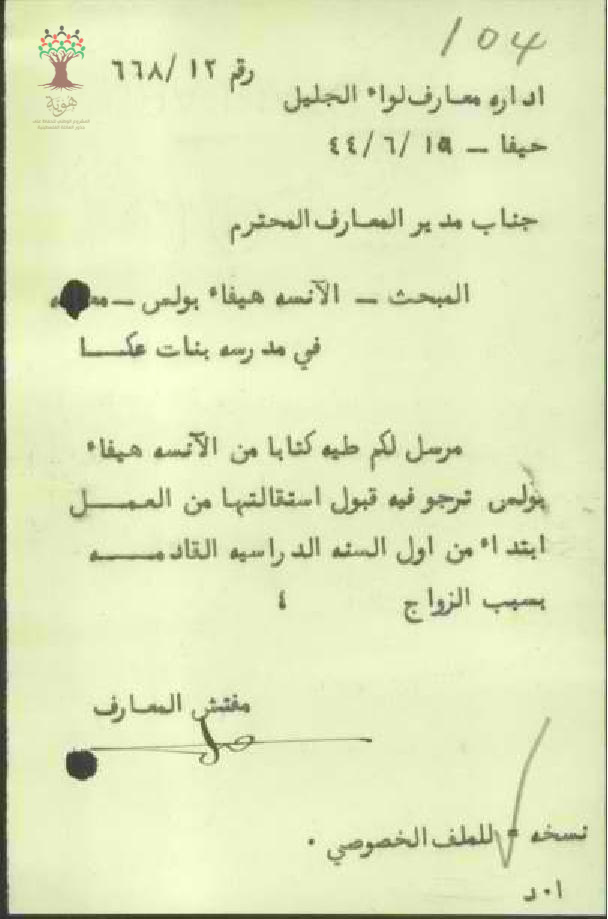 104
رقم ٦٦٨/١٢
اداره معارف لواء الجليل
حيفا – ١٥/٦/٤٤
جناب مدير المعارف المحترم
المبحث – الآنسه هيفاء بولس –
في مدرسه بنات عكا
مرسل لكم طيه كتابا من الآنسه هيفاء
بولس ترجو فيه قبول استقالتها من العمل
ابتداء من اول السنه الدراسيه القادمه
بسبب الزواج ٤
مفتش المعارف
نسخه = للملف الخصوصي .
ا٠د
هوية